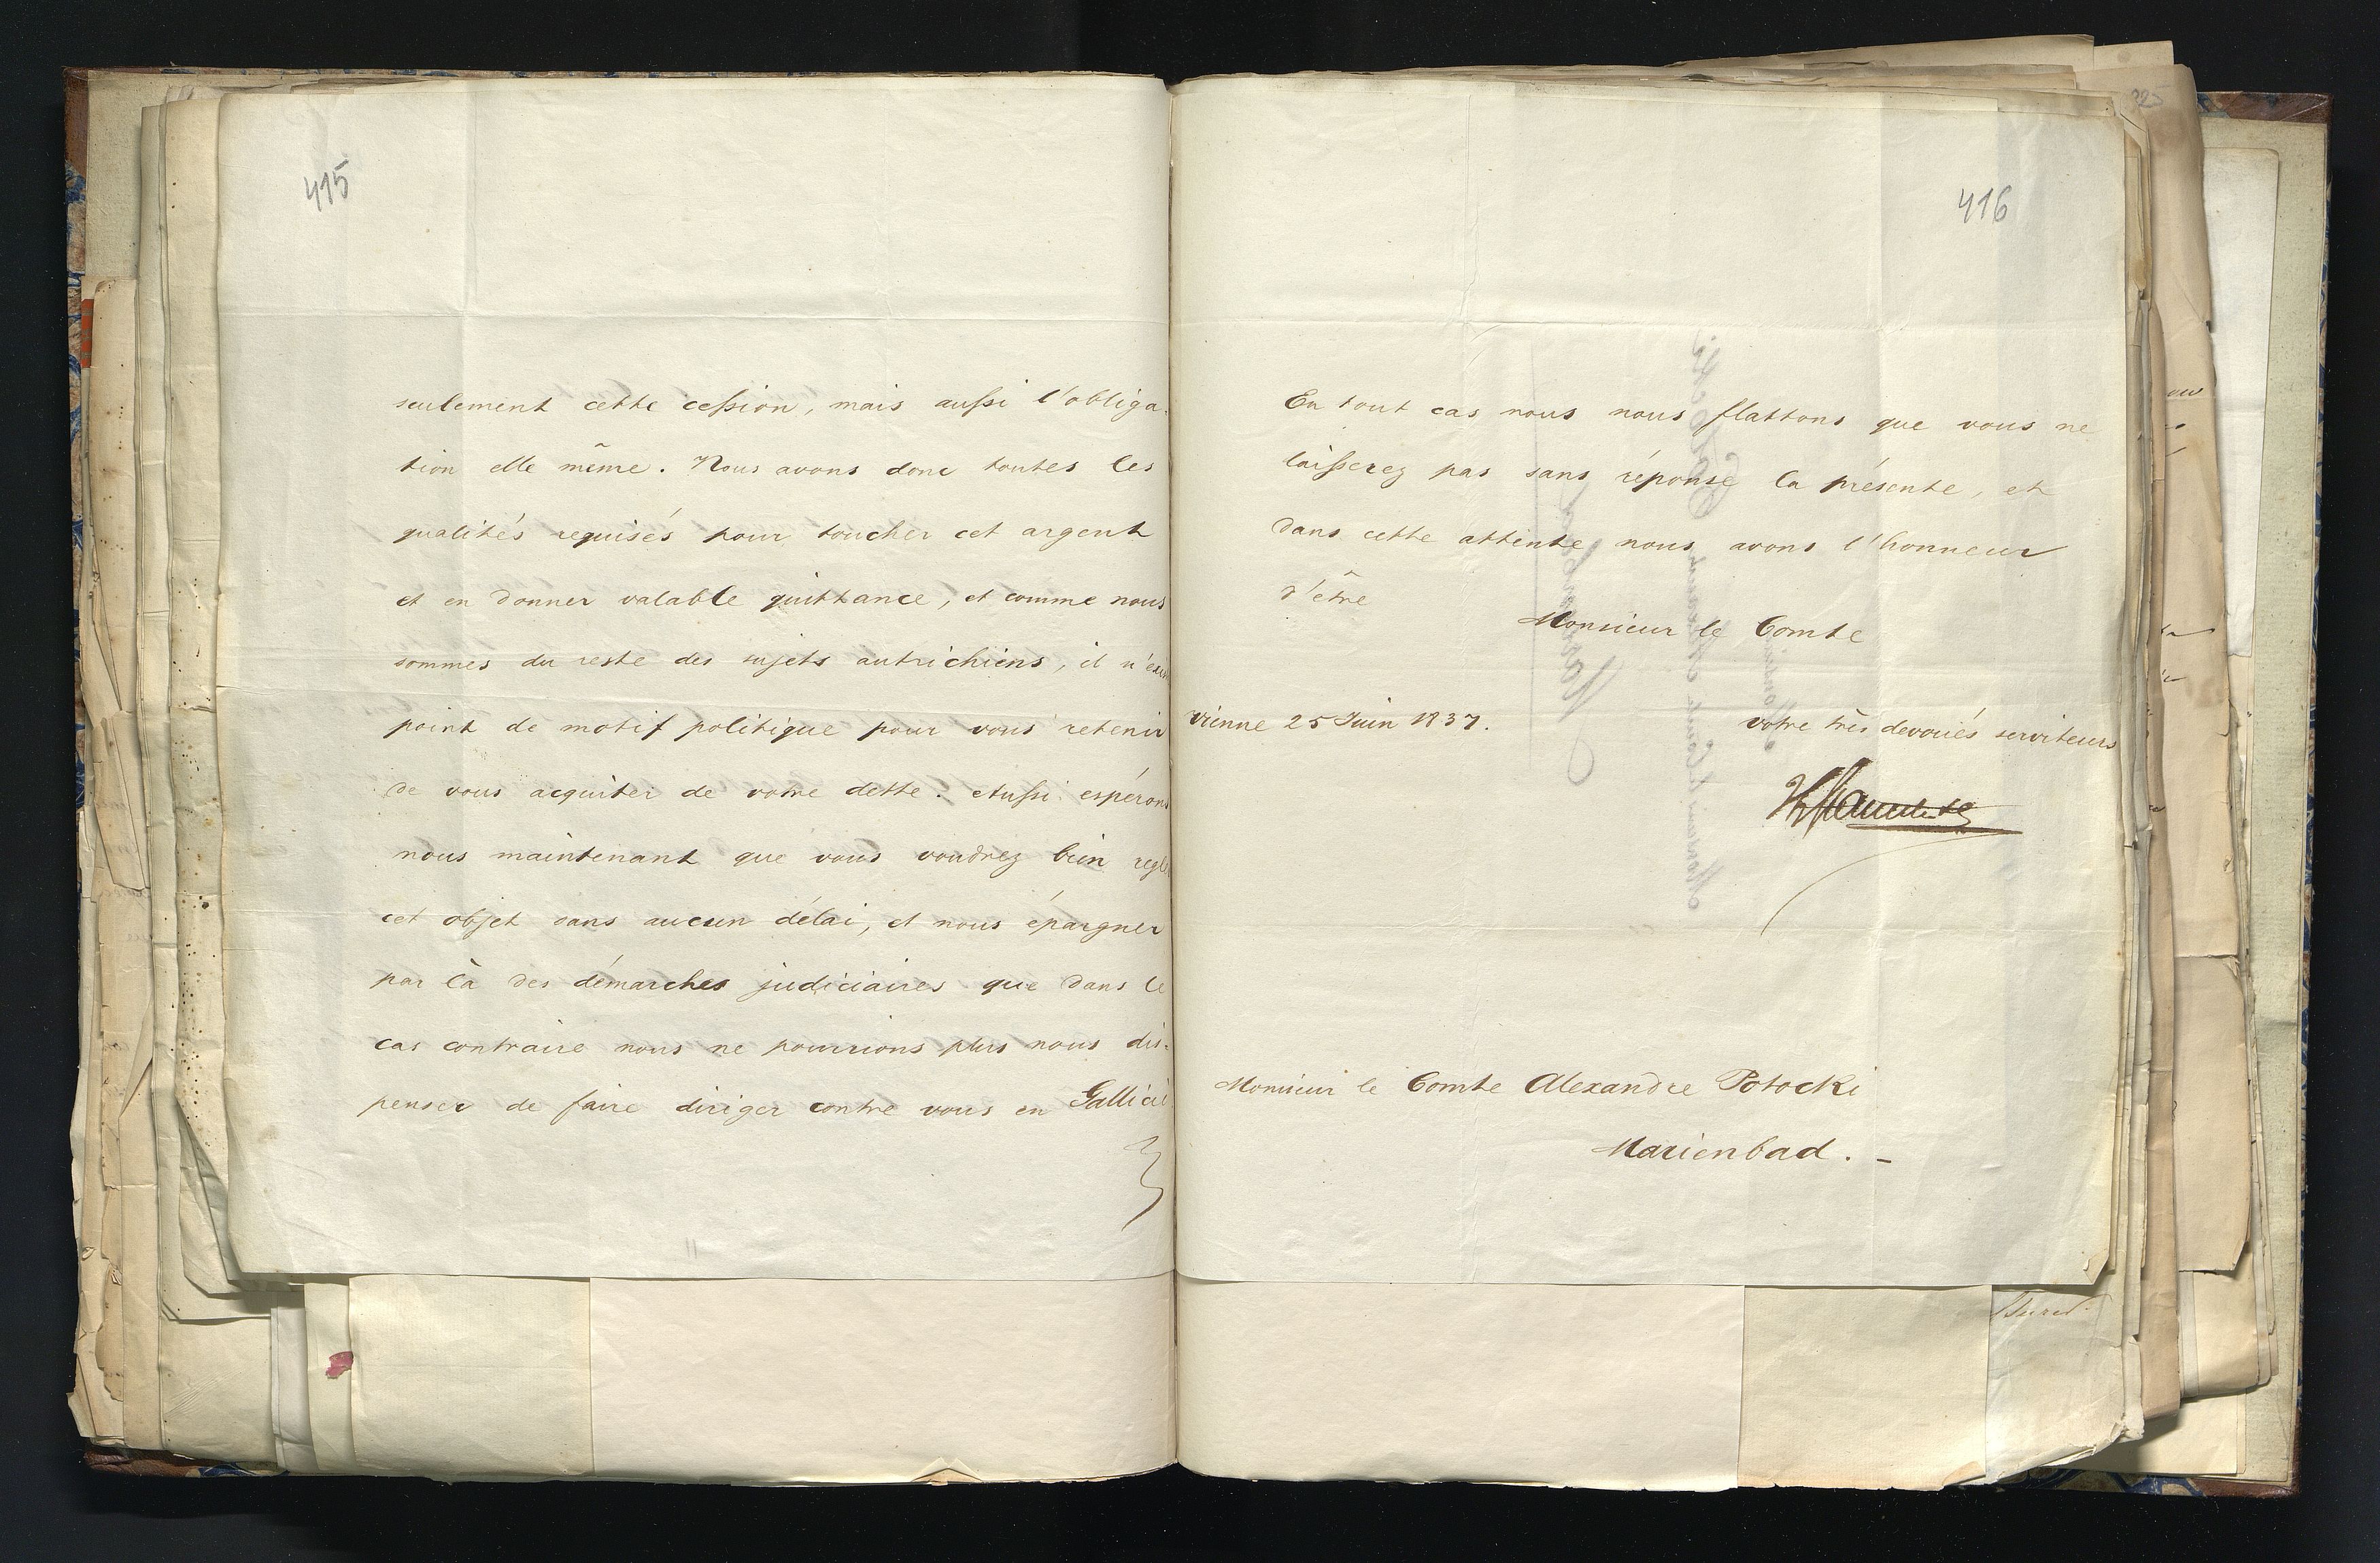 415
seulement cette cession, mais aussi l'obliga-
tion elle même. Nous avons donc toutes les
qualités requisés pour toucher cet argent
et en donner valable quittance, et comme nous
sommes du reste des sujets autrichiens, il
point de motif politique pour vous retenir
de vous acquiter de votre dette. Aussi espérons
nous maintenant que vous voudrez bien
cet objet sans aucun délai, et nous épargner
par là des démarches judiciaires que dans le
cas contraire nous ne pourrions plus nous dis-
penser de faire diriger contre vous en Gallicie
416
En tout cas nous nous flattons que vous ne
laisserez pas sans réponse la présente, et
dans cette attente nous avons l'honneur
d'être
Monsieur le Comte
Vienne 25 Juin 1837.
votre très devoués serviteurs
Monsieur le Comte Alexandre Potocki
Marienbad. -
325